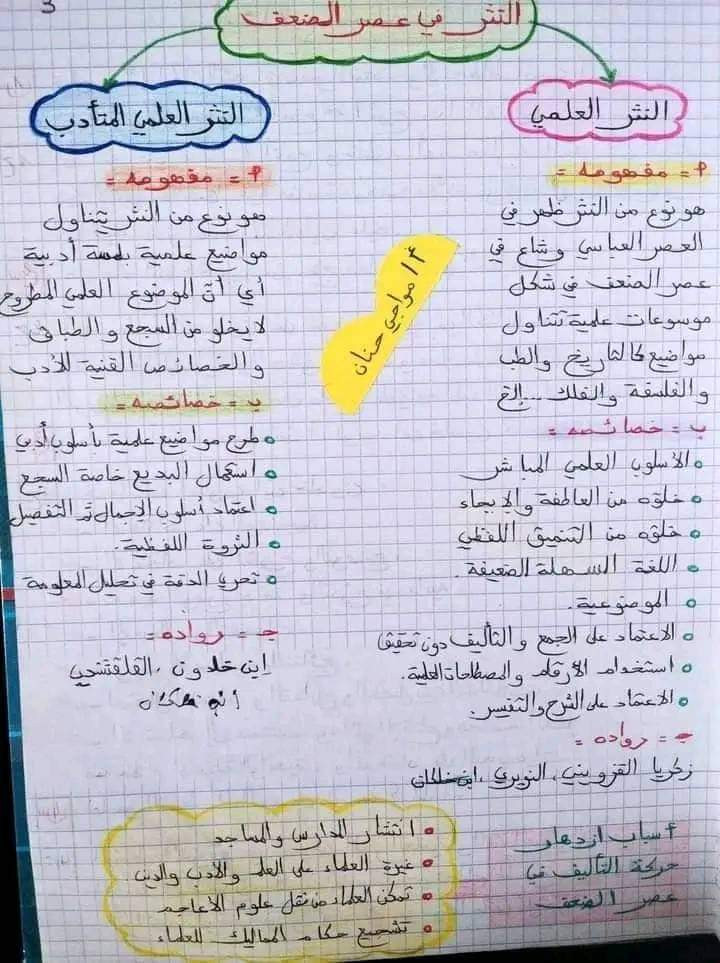 3
النثر في عصر الضعف
النثر العلمي
أ = مفهومه =
هو نوع من النثر ظهر في
العصر العباسي وشاع في
عصر الضعف في شكل
موسوعات علمية تتناول
مواضيع كالتاريخ والطب
والفلسفة والفلك ... إلخ
ب = خصائصه =
الأسلوب العلمي المباشر
خلوّه من العاطفة والإيحاء
خلوّه من التنميق اللفظي
اللغة السهلة الضعيفة.
الموضوعية.
الاعتماد على الجمع والتأليف دون تحقيق
استخدام الأرقام والمصطلحات العلمية.
الاعتماد على الشرح والتفسير.
جـ = رواده =
زكريا القزويني، النويري، ابن خلكان
النثر العلمي المتأدب
أ = مفهومه =
هو نوع من النثر يتناول
مواضيع علمية بلمسة أدبية
أي أنّ الموضوع العلمي المطروح
لا يخلو من السجع والطباق
والخصائص الفنية للأدب
ب = خصائصه =
طرح مواضيع علمية بأسلوب أدبي
استعمال البديع خاصة السجع
اعتماد أسلوب الإجمال ثم التفصيل
الثروة اللفظية.
تحري الدقة في تحليل المعلومة
جـ = رواده =
ابن خلدون، القلقشندي
أ/ مواجي حنان
أسباب ازدهار
حركة التأليف في
عصر الضعف
انتشار المدارس والمساجد
غيرة العلماء على العلم والأدب والدين
تمكن العلماء من نقل علوم الأعاجم
تشجيع حكام المماليك للعلماء